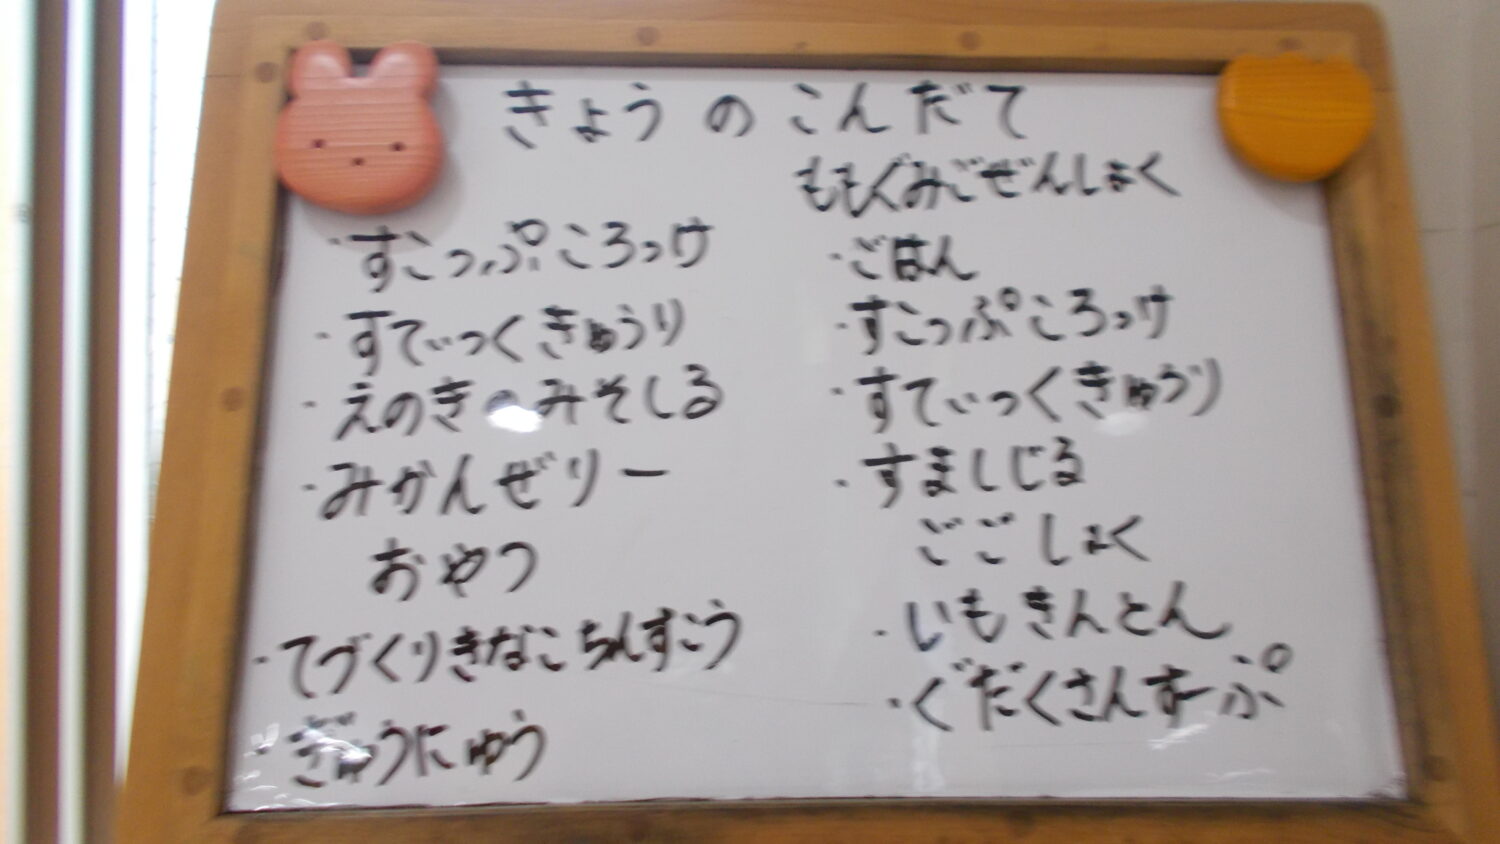 きょうのこんだて
・すこっぷころっけ
・すてぃっくきゅうり
・えのきのみそしる
・みかんぜりー
おやつ
・てづくりきなこちんすこう
・ぎゅうにゅう
ももぐみごぜんしょく
・ごはん
・すこっぷころっけ
・すてぃっくきゅうり
・すましじる
ごごしょく
・いもきんとん
・ぐだくさんすーぷ